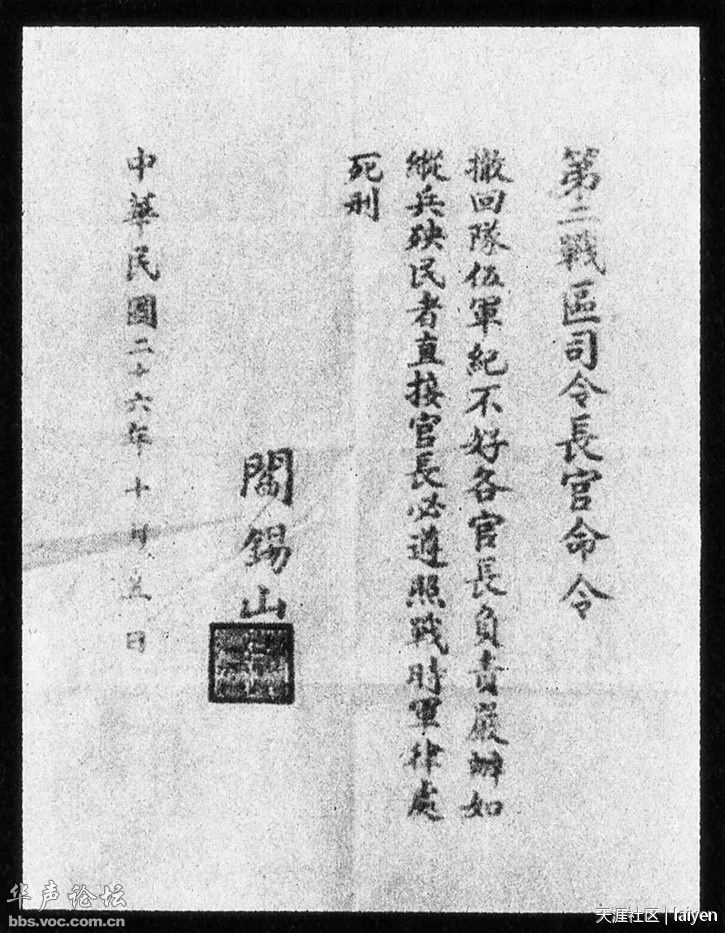 第二戰區司令長官命令
撤回隊伍軍紀不好各官長負責嚴辦如
縱兵殃民者直接官長必遵照戰時軍律處
死刑
閻錫山
中華民國二十六年十月日
华声论坛
bbs.voc.com.cn
天涯社区 | laiyen